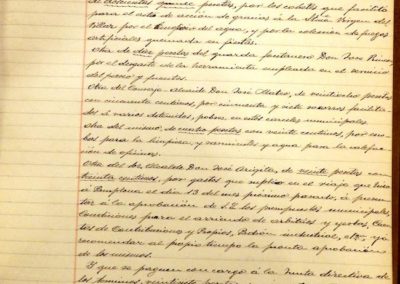 de doscientas quince pesetas, por los cohetes que facilitó
para el acto de acción de gracias á la Stma Virgen del
Pilar por el del agua, y por la colección de fuegos
artificiales quemada en fiestas.
Otra de diez pesetas del guarda fontanero Don José
por el desgaste de la herramienta empleada en el servicio
del paseo y fuentes.
Otra del Conserje-alcaide Don José Mateo, de veintiocho pesetas
con cincuenta centimos, por cincuenta y siete socorros facilita
dos á varios detenidos, pobres, en estas carceles municipales
Otra del mismo, de cuatro pesetas con veinte centimos, por
bos para la limpieza, y ramulla y agua para la calefac
ción de oficinas.
Otra del Sr. Alcalde Don José Arizpita, de veinte pesetas con
treinta centimos, por gastos que suplió en el viaje que hizo
á Pamplona el día 13 del mes próximo pasado, á presen
tar á la aprobación de S.E. los presupuestos municipales,
Condiciones para el arriendo de arbitrios y yerbas, Cuen
tas de Contribuciones y Propios, Padrón industrial, etc., y á
recomendar al propio tiempo la pronta aprobación
de los mismos.
Y que se paguen con cargo á la Junta directiva de
los